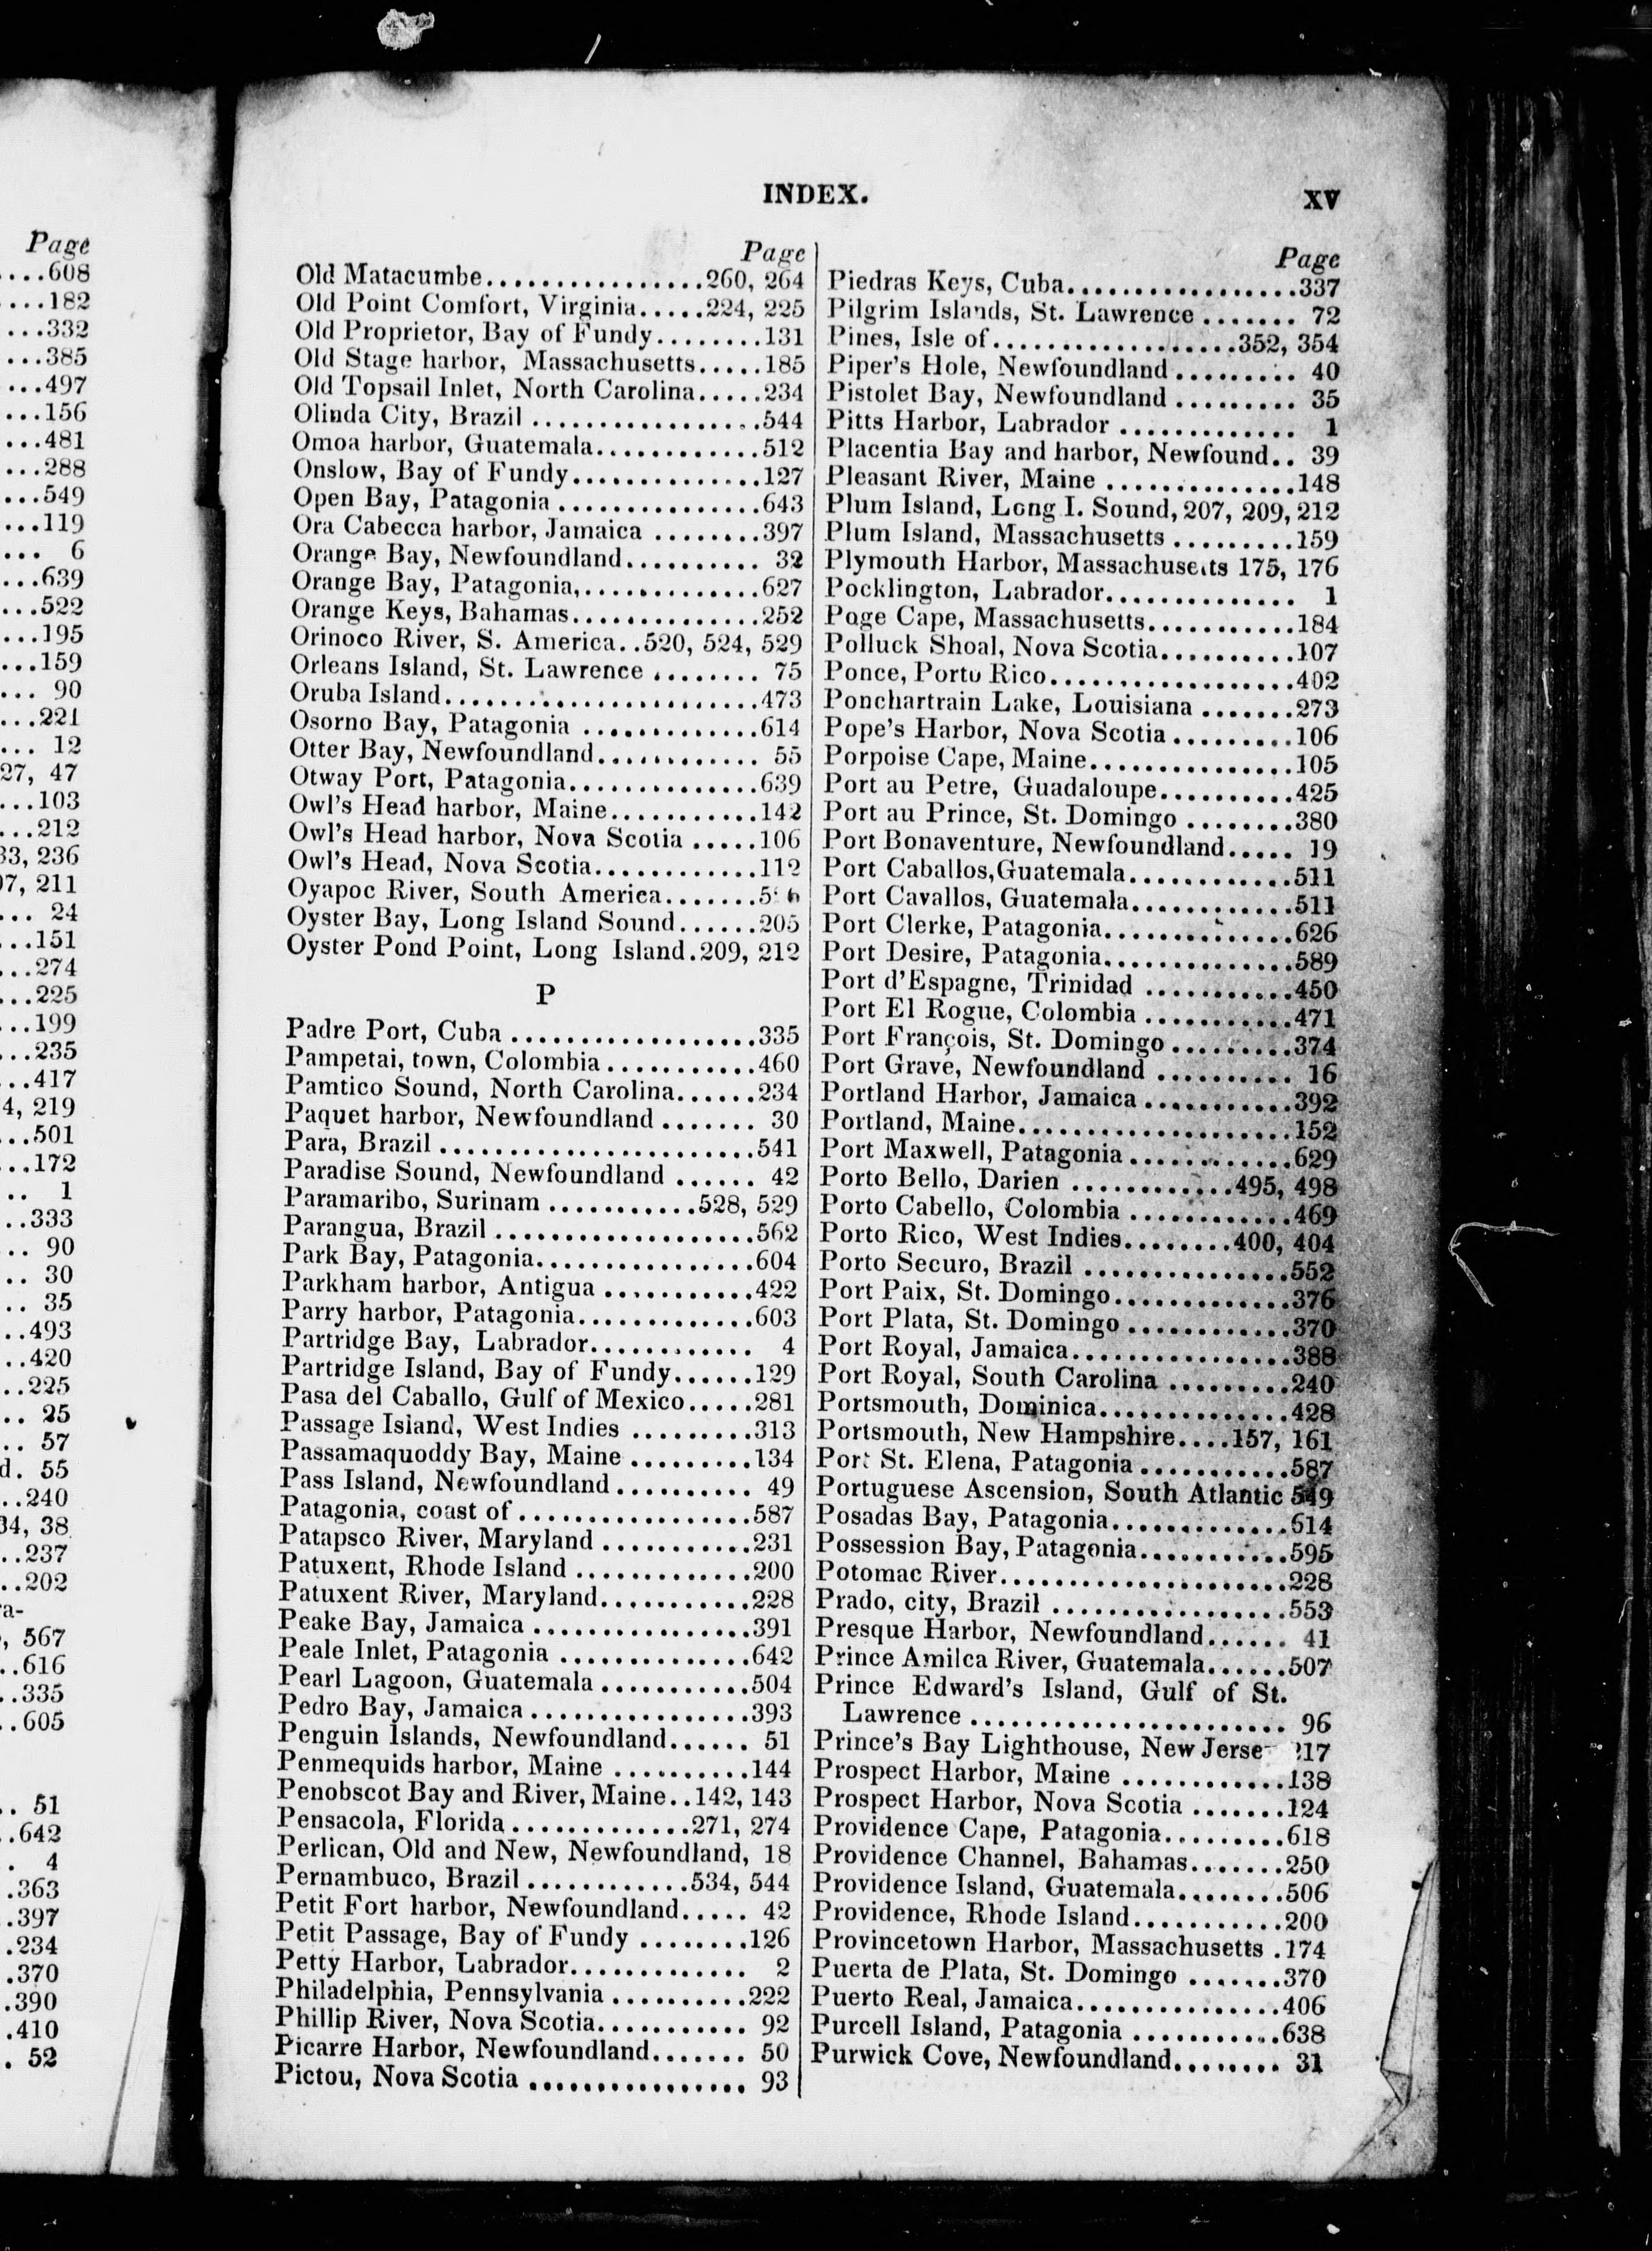 Page
....608
....182
...332
...385
...497
...156
...481
...288
...549
...119
... 6
...639
...522
...195
...159
... 90
...221
... 12
27, 47
...103
...212
33, 236
07, 211
... 24
...151
...274
...225
...199
...235
...417
4, 219
...501
...172
.. 1
..333
.. 90
.. 30
.. 35
..493
..420
..225
.. 25
.. 57
d. 55
..240
34, 38
..237
..202
a-
, 567
..616
..335
..605
.. 51
..642
. 4
.363
.397
.234
.370
.390
.410
. 52
INDEX. XV
Page
Old Matacumbe................260, 264
Old Point Comfort, Virginia.....224, 225
Old Proprietor, Bay of Fundy........131
Old Stage harbor, Massachusetts.....185
Old Topsail Inlet, North Carolina.....234
Olinda City, Brazil .................544
Omoa harbor, Guatemala............512
Onslow, Bay of Fundy..............127
Open Bay, Patagonia ...............643
Ora Cabecca harbor, Jamaica ........397
Orange Bay, Newfoundland.......... 32
Orange Bay, Patagonia,.............627
Orange Keys, Bahamas..............252
Orinoco River, S. America..520, 524, 529
Orleans Island, St. Lawrence ........ 75
Oruba Island.......................473
Osorno Bay, Patagonia .............614
Otter Bay, Newfoundland............ 55
Otway Port, Patagonia..............639
Owl's Head harbor, Maine...........142
Owl's Head harbor, Nova Scotia .....106
Owl's Head, Nova Scotia............112
Oyapoc River, South America.......
Oyster Bay, Long Island Sound......205
Oyster Pond Point, Long Island.209, 212
P
Padre Port, Cuba ..................335
Pampetai, town, Colombia ...........460
Pamtico Sound, North Carolina......234
Paquet harbor, Newfoundland ....... 30
Para, Brazil .......................541
Paradise Sound, Newfoundland ...... 42
Paramaribo, Surinam ...........528, 529
Parangua, Brazil ...................562
Park Bay, Patagonia................604
Parkham harbor, Antigua ...........422
Parry harbor, Patagonia.............603
Partridge Bay, Labrador............ 4
Partridge Island, Bay of Fundy......129
Pasa del Caballo, Gulf of Mexico.....281
Passage Island, West Indies .........313
Passamaquoddy Bay, Maine .........134
Pass Island, Newfoundland .......... 49
Patagonia, coast of .................587
Patapsco River, Maryland ...........231
Patuxent, Rhode Island .............200
Patuxent River, Maryland...........228
Peake Bay, Jamaica ................391
Peale Inlet, Patagonia ..............642
Pearl Lagoon, Guatemala ...........504
Pedro Bay, Jamaica ................393
Penguin Islands, Newfoundland...... 51
Penmequids harbor, Maine ..........144
Penobscot Bay and River, Maine..142, 143
Pensacola, Florida .............271, 274
Perlican, Old and New, Newfoundland, 18
Pernambuco, Brazil ............534, 544
Petit Fort harbor, Newfoundland..... 42
Petit Passage, Bay of Fundy ........126
Petty Harbor, Labrador............. 2
Philadelphia, Pennsylvania ..........222
Phillip River, Nova Scotia........... 92
Picarre Harbor, Newfoundland....... 50
Pictou, Nova Scotia ................ 93
Page
Piedras Keys, Cuba.................337
Pilgrim Islands, St. Lawrence ....... 72
Pines, Isle of..................352, 354
Piper's Hole, Newfoundland ......... 40
Pistolet Bay, Newfoundland ......... 35
Pitts Harbor, Labrador ............. 1
Placentia Bay and harbor, Newfound.. 39
Pleasant River, Maine ..............148
Plum Island, Long I. Sound, 207, 209, 212
Plum Island, Massachusetts .........159
Plymouth Harbor, Massachusetts 175, 176
Pocklington, Labrador.............. 1
Poge Cape, Massachusetts...........184
Polluck Shoal, Nova Scotia..........107
Ponce, Porto Rico..................402
Ponchartrain Lake, Louisiana .......273
Pope's Harbor, Nova Scotia .........106
Porpoise Cape, Maine...............105
Port au Petre, Guadaloupe..........425
Port au Prince, St. Domingo ........380
Port Bonaventure, Newfoundland..... 19
Port Caballos, Guatemala............511
Port Cavallos, Guatemala............511
Port Clerke, Patagonia..............626
Port Desire, Patagonia..............589
Port d'Espagne, Trinidad ...........450
Port El Rogue, Colombia ...........471
Port François, St. Domingo .........374
Port Gravé, Newfoundland .......... 16
Portland Harbor, Jamaica ...........392
Portland, Maine....................152
Port Maxwell, Patagonia ............629
Porto Bello, Darien ............495, 498
Porto Cabello, Colombia ............469
Porto Rico, West Indies........400, 404
Porto Securo, Brazil ...............552
Port Paix, St. Domingo.............376
Port Plata, St. Domingo ............370
Port Royal, Jamaica................388
Port Royal, South Carolina .........240
Portsmouth, Dominica..............428
Portsmouth, New Hampshire....157, 161
Port St. Elena, Patagonia ...........587
Portuguese Ascension, South Atlantic 549
Posadas Bay, Patagonia.............614
Possession Bay, Patagonia...........595
Potomac River.....................228
Prado, city, Brazil .................553
Presque Harbor, Newfoundland...... 41
Prince Amilca River, Guatemala......507
Prince Edward's Island, Gulf of St.
Lawrence ....................... 96
Prince's Bay Lighthouse, New Jerse 217
Prospect Harbor, Maine ............138
Prospect Harbor, Nova Scotia .......124
Providence Cape, Patagonia.........618
Providence Channel, Bahamas.......250
Providence Island, Guatemala........506
Providence, Rhode Island...........200
Provincetown Harbor, Massachusetts .174
Puerta de Plata, St. Domingo .......370
Puerto Real, Jamaica...............406
Purcell Island, Patagonia ...........638
Purwick Cove, Newfoundland........ 31